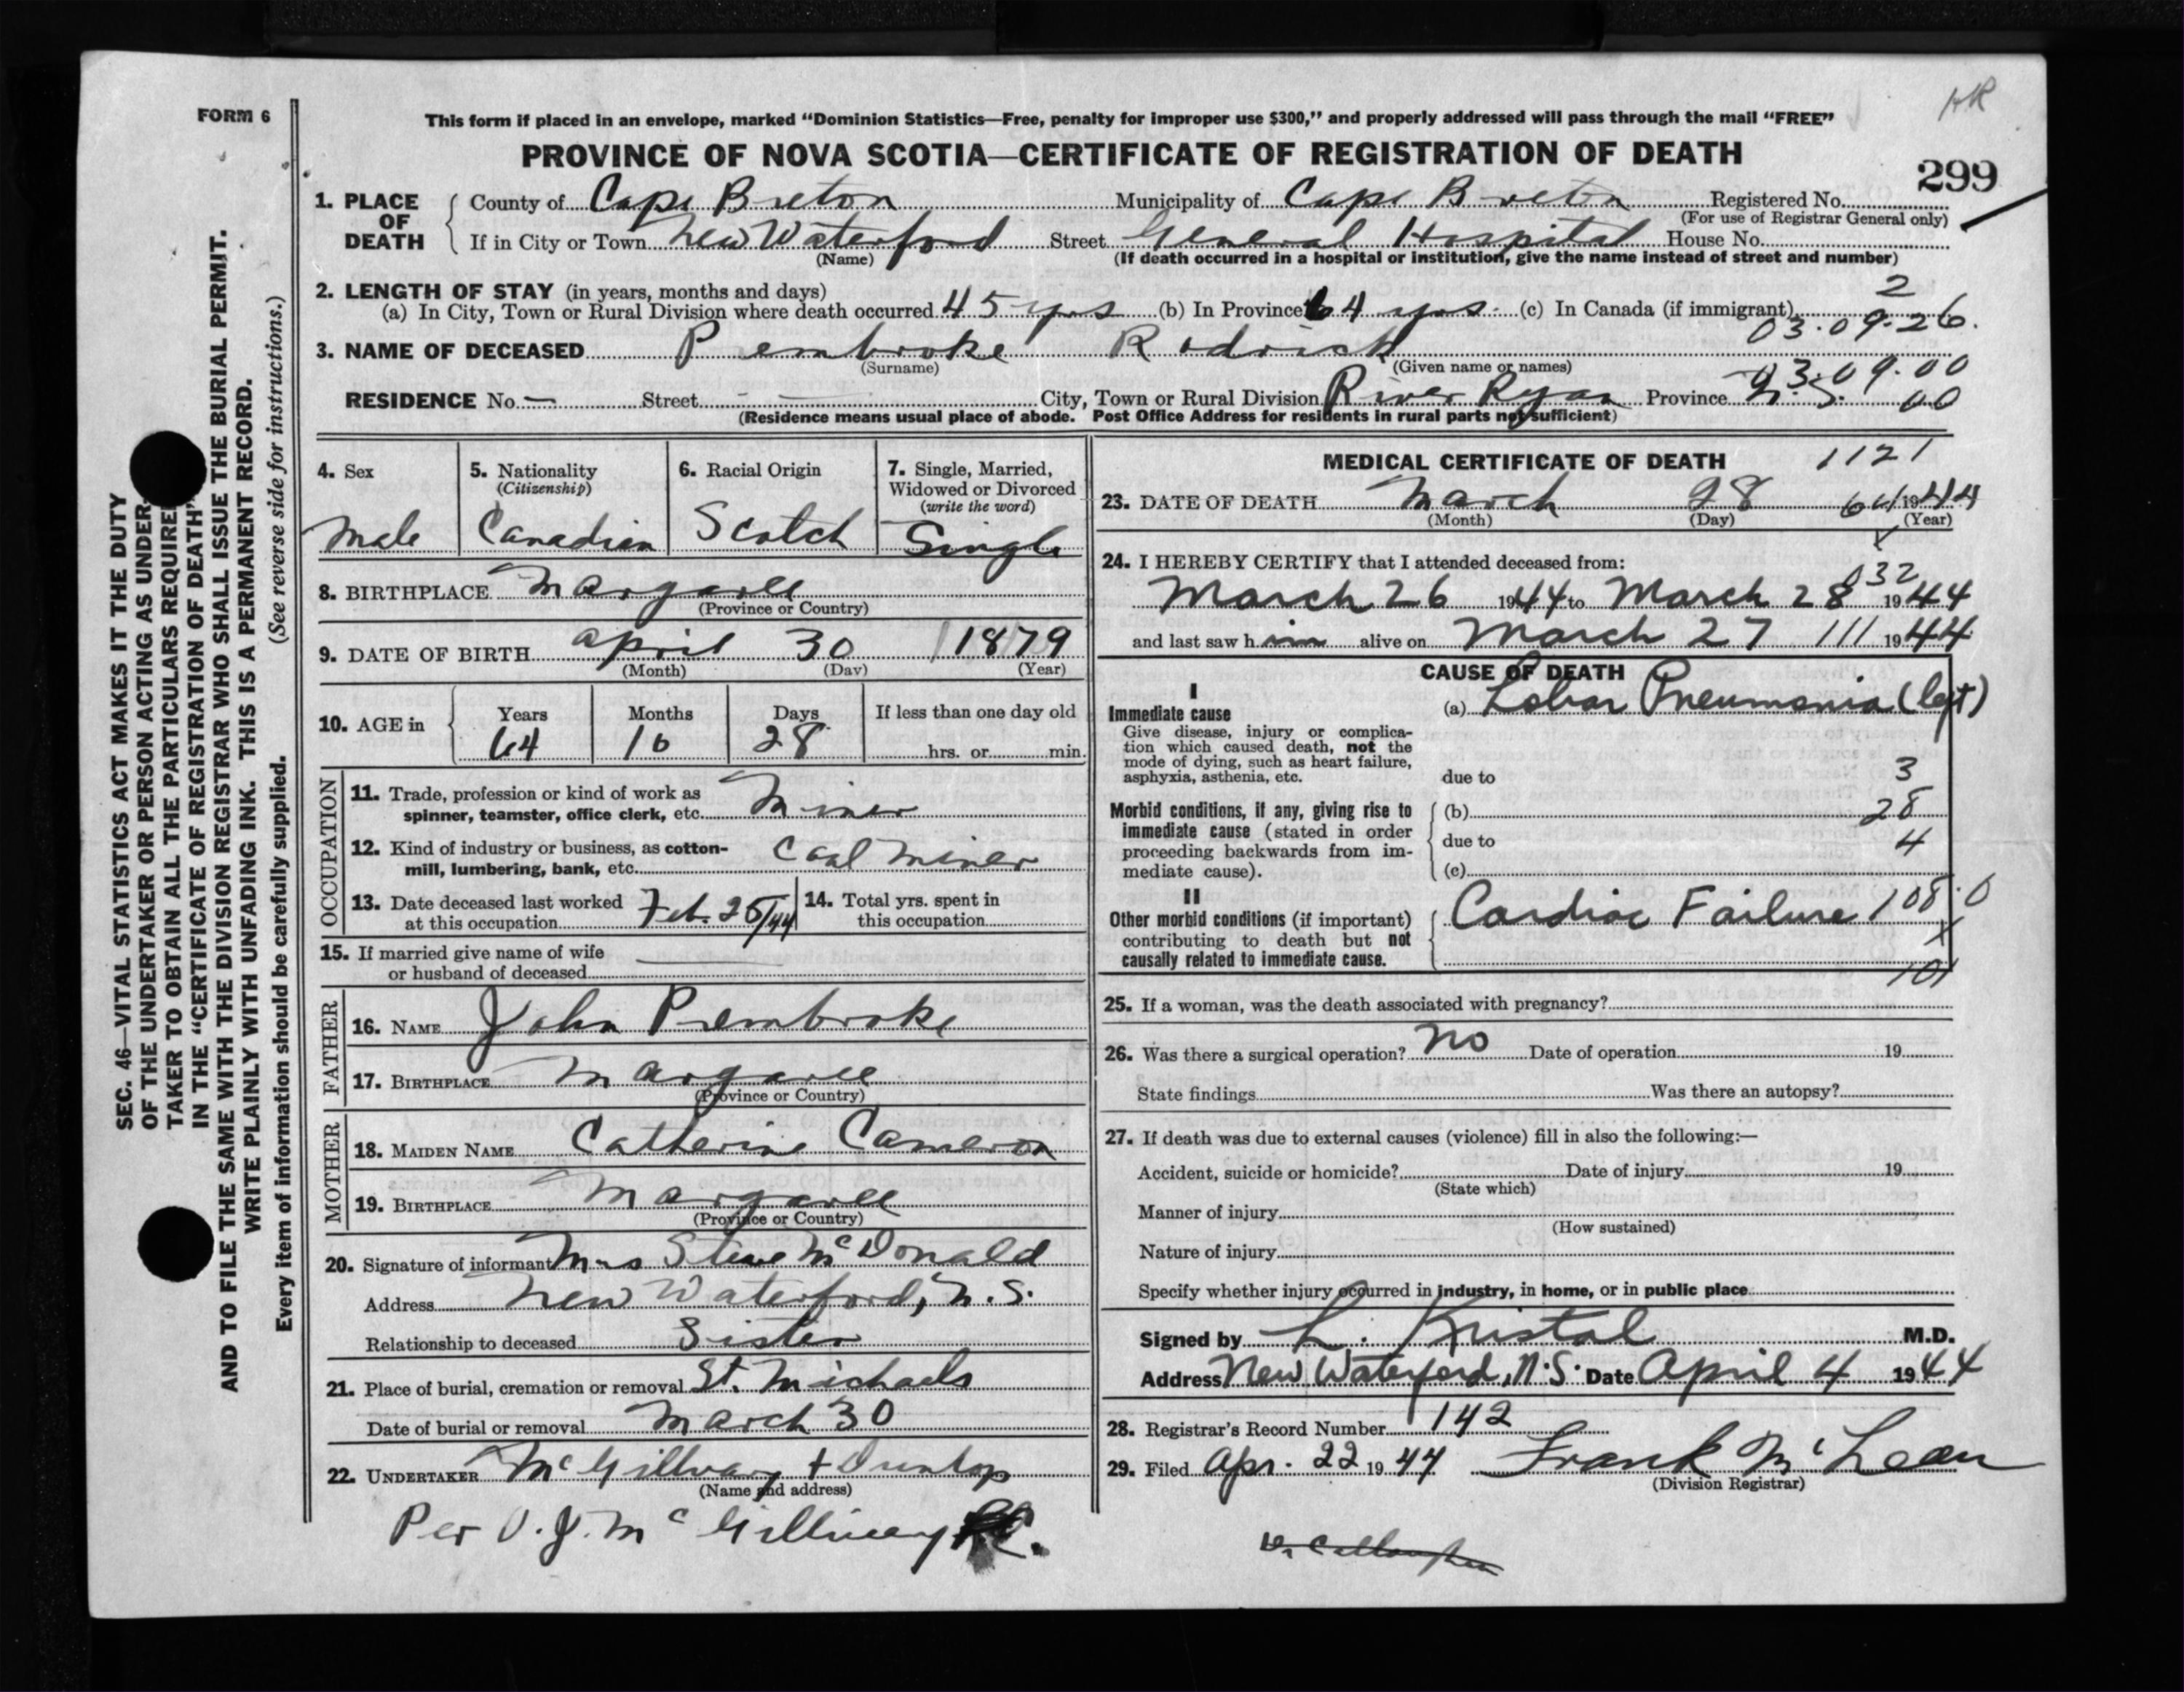 HR
FORM 6
This form if placed in an envelope, marked "Dominion Statistics—Free, penalty for improper use $300," and properly addressed will pass through the mail "FREE"
PROVINCE OF NOVA SCOTIA—CERTIFICATE OF REGISTRATION OF DEATH
299
1. PLACE OF DEATH County of Cape Breton Municipality of Cape Breton Registered No.
(For use of Registrar General only)
If in City or Town New Waterford Street General Hospital House No.
(Name) (If death occurred in a hospital or institution, give the name instead of street and number)
2. LENGTH OF STAY (in years, months and days) 2
(a) In City, Town or Rural Division where death occurred 45 yrs (b) In Province 64 yrs. (c) In Canada (if immigrant)
03.09.26.
3. NAME OF DECEASED Pembroke Rodrick
(Surname) (Given name or names)
03.09.00
RESIDENCE No. — Street — City, Town or Rural Division River Ryan Province N.S. 00
(Residence means usual place of abode. Post Office Address for residents in rural parts not sufficient)
4. Sex 5. Nationality (Citizenship) 6. Racial Origin 7. Single, Married, Widowed or Divorced (write the word)
Male Canadian Scotch Single
8. BIRTHPLACE Margaree
(Province or Country)
9. DATE OF BIRTH April 30 1879
(Month) (Day) (Year)
10. AGE in Years Months Days If less than one day old
64 10 28 hrs. or min.
OCCUPATION
11. Trade, profession or kind of work as
spinner, teamster, office clerk, etc. Miner
12. Kind of industry or business, as cotton-
mill, lumbering, bank, etc. Coal Miner
13. Date deceased last worked
at this occupation Feb. 25/44
14. Total yrs. spent in
this occupation
15. If married give name of wife
or husband of deceased
FATHER
16. NAME John Pembroke
17. BIRTHPLACE Margaree
(Province or Country)
MOTHER
18. MAIDEN NAME Catherine Cameron
19. BIRTHPLACE Margaree
(Province or Country)
20. Signature of informant Mrs Steve McDonald
Address New Waterford, N.S.
Relationship to deceased Sister
21. Place of burial, cremation or removal St. Michaels
Date of burial or removal March 30
22. UNDERTAKER McGillvary + Dunlop
(Name and address)
Per V. J. McGillivary
MEDICAL CERTIFICATE OF DEATH 1121
23. DATE OF DEATH March 28 64 1944
(Month) (Day) (Year)
X
24. I HEREBY CERTIFY that I attended deceased from:
032
March 26 1944 to March 28 1944
and last saw him alive on March 27 111 1944
CAUSE OF DEATH
I
Immediate cause (a) Lobar Pneumonia (left)
Give disease, injury or complica-
tion which caused death, not the
mode of dying, such as heart failure,
asphyxia, asthenia, etc. due to 3
Morbid conditions, if any, giving rise to (b) 28
immediate cause (stated in order
proceeding backwards from im- due to 4
mediate cause). (c)
II
Other morbid conditions (if important) Cardiac Failure 108.0
contributing to death but not X
causally related to immediate cause. 101
25. If a woman, was the death associated with pregnancy?
26. Was there a surgical operation? No Date of operation 19
State findings Was there an autopsy?
27. If death was due to external causes (violence) fill in also the following:—
Accident, suicide or homicide? Date of injury 19
(State which)
Manner of injury
(How sustained)
Nature of injury
Specify whether injury occurred in industry, in home, or in public place
Signed by L. Kristal M.D.
Address New Waterford, N.S. Date April 4 1944
28. Registrar's Record Number 142
29. Filed Apr. 22 1944 Frank McLean
(Division Registrar)
SEC. 46—VITAL STATISTICS ACT MAKES IT THE DUTY
OF THE UNDERTAKER OR PERSON ACTING AS UNDER-
TAKER TO OBTAIN ALL THE PARTICULARS REQUIRED
IN THE "CERTIFICATE OF REGISTRATION OF DEATH"
AND TO FILE THE SAME WITH THE DIVISION REGISTRAR WHO SHALL ISSUE THE BURIAL PERMIT.
WRITE PLAINLY WITH UNFADING INK. THIS IS A PERMANENT RECORD.
Every item of information should be carefully supplied. (See reverse side for instructions.)